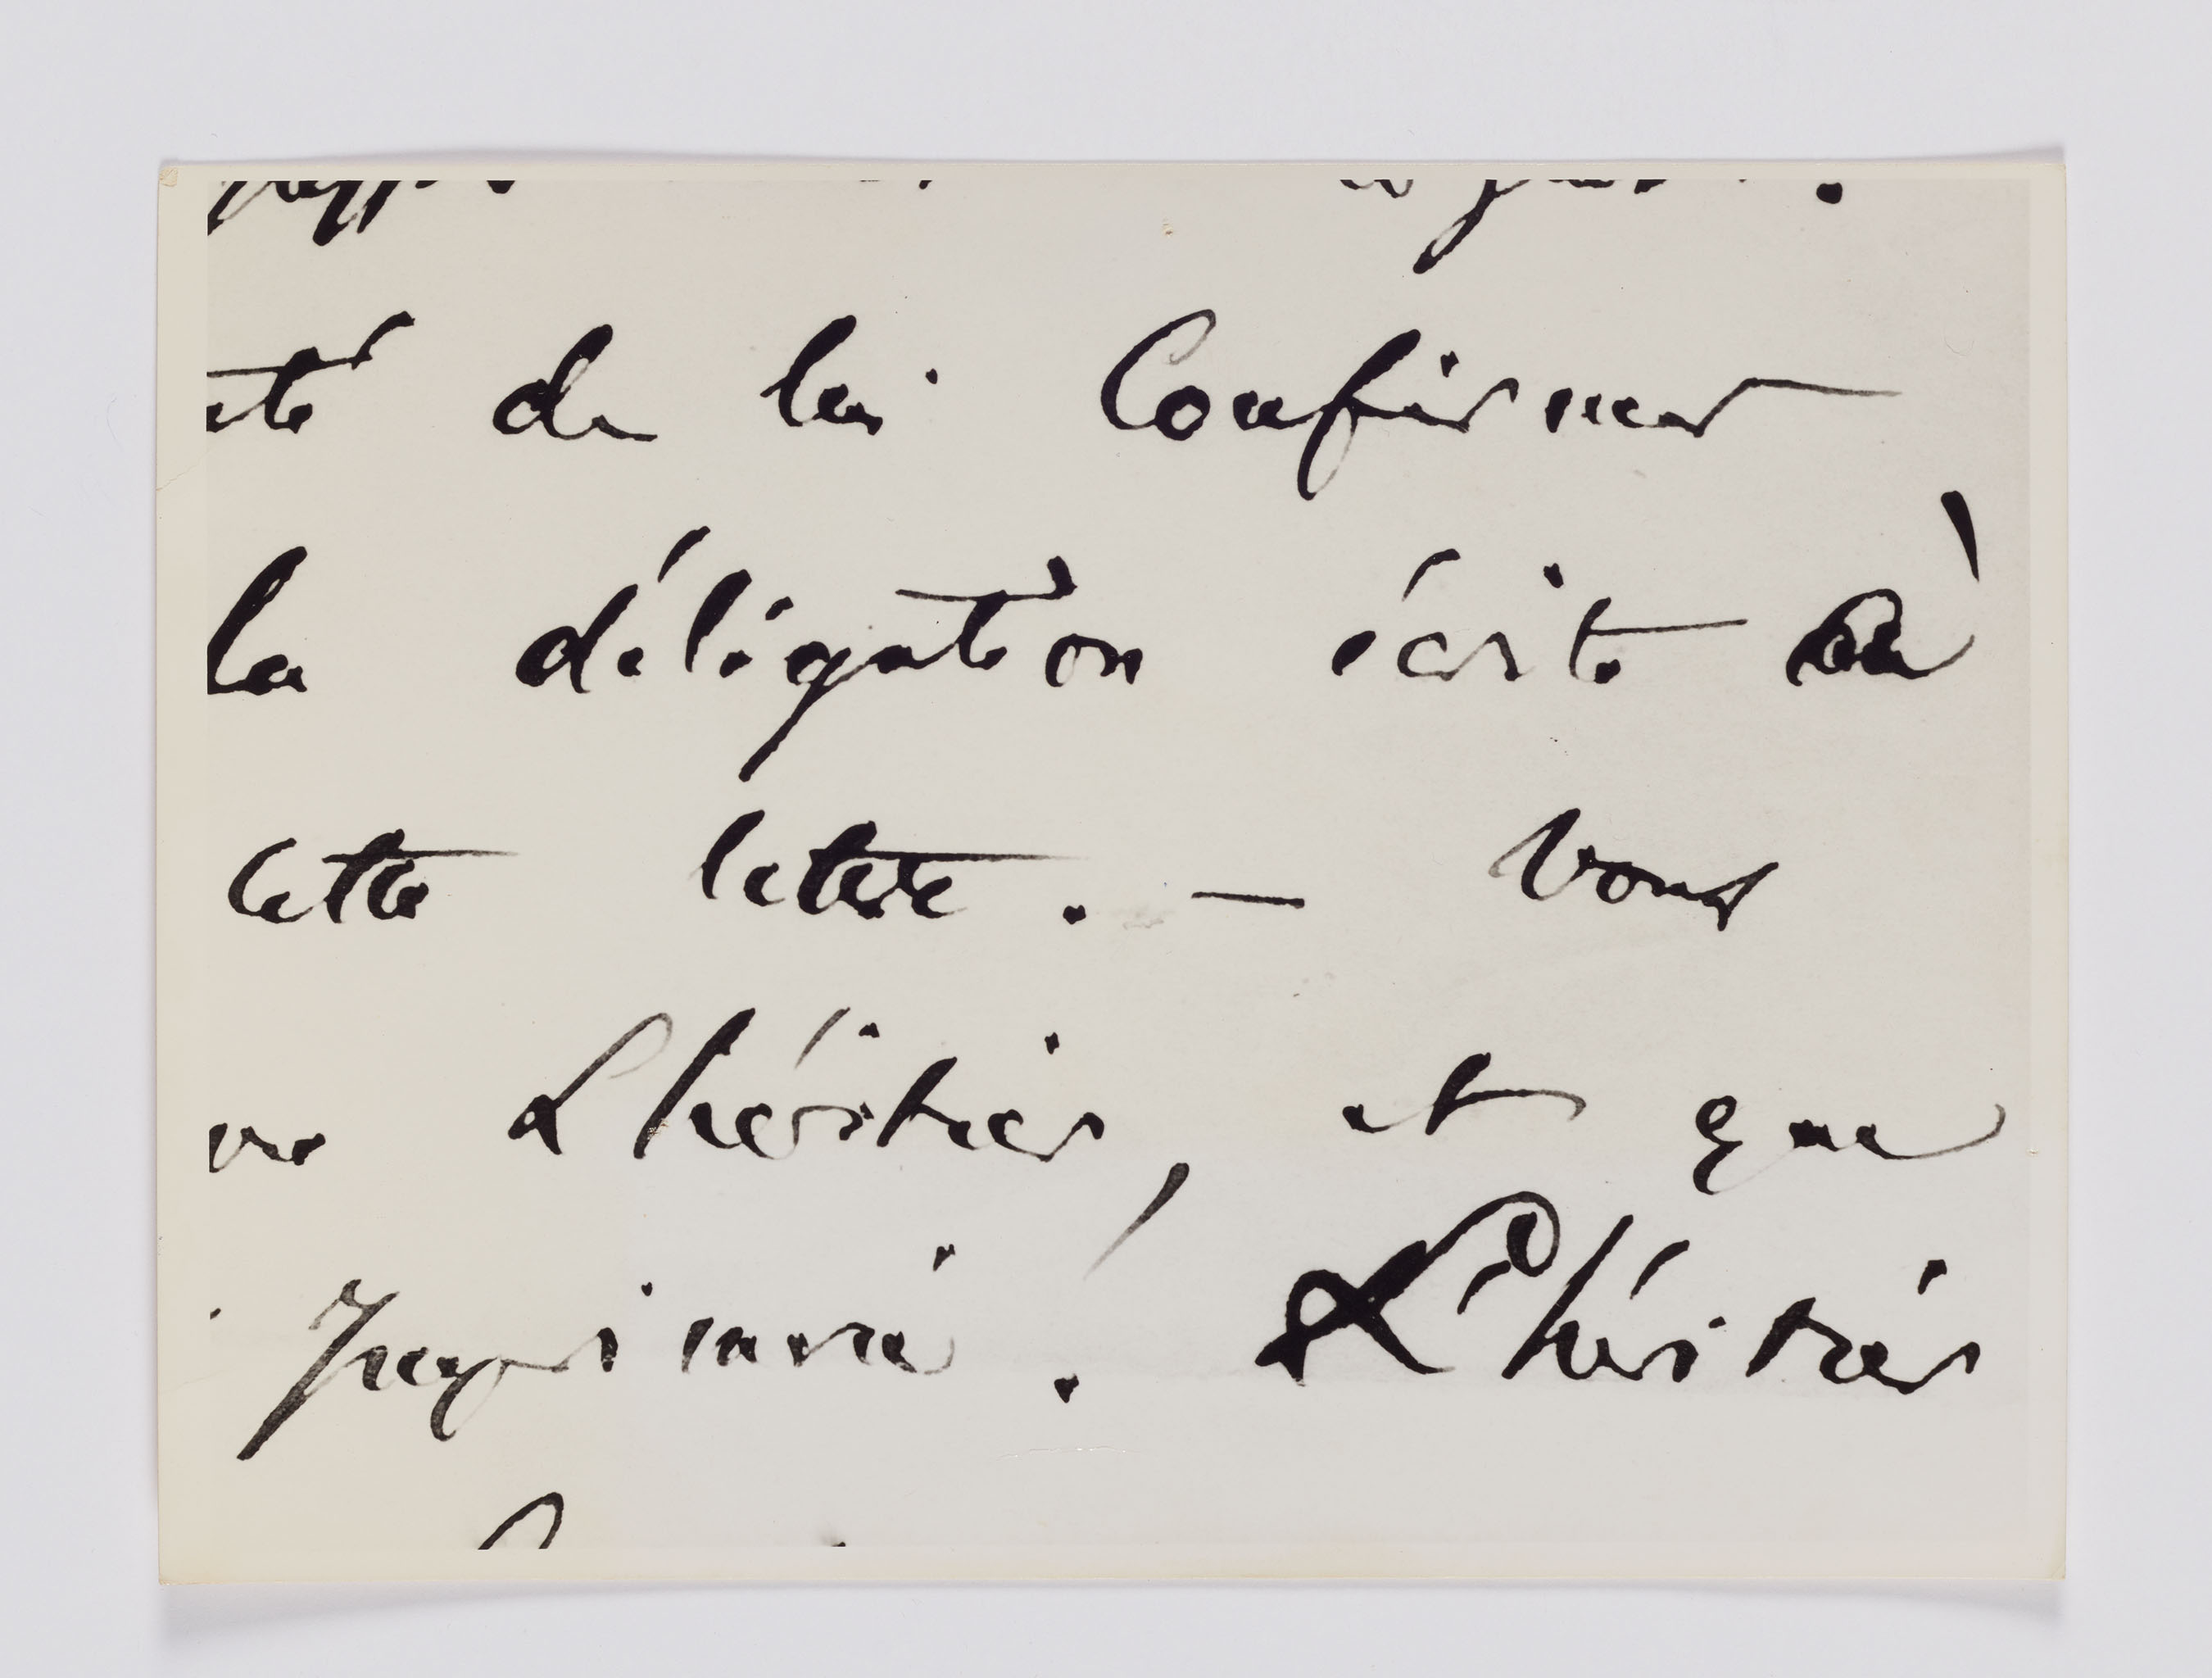 de lui Confirmer
la délégation écrite à
Cette lettre. — Vous
Lhéritier, et que
. Lhéritier